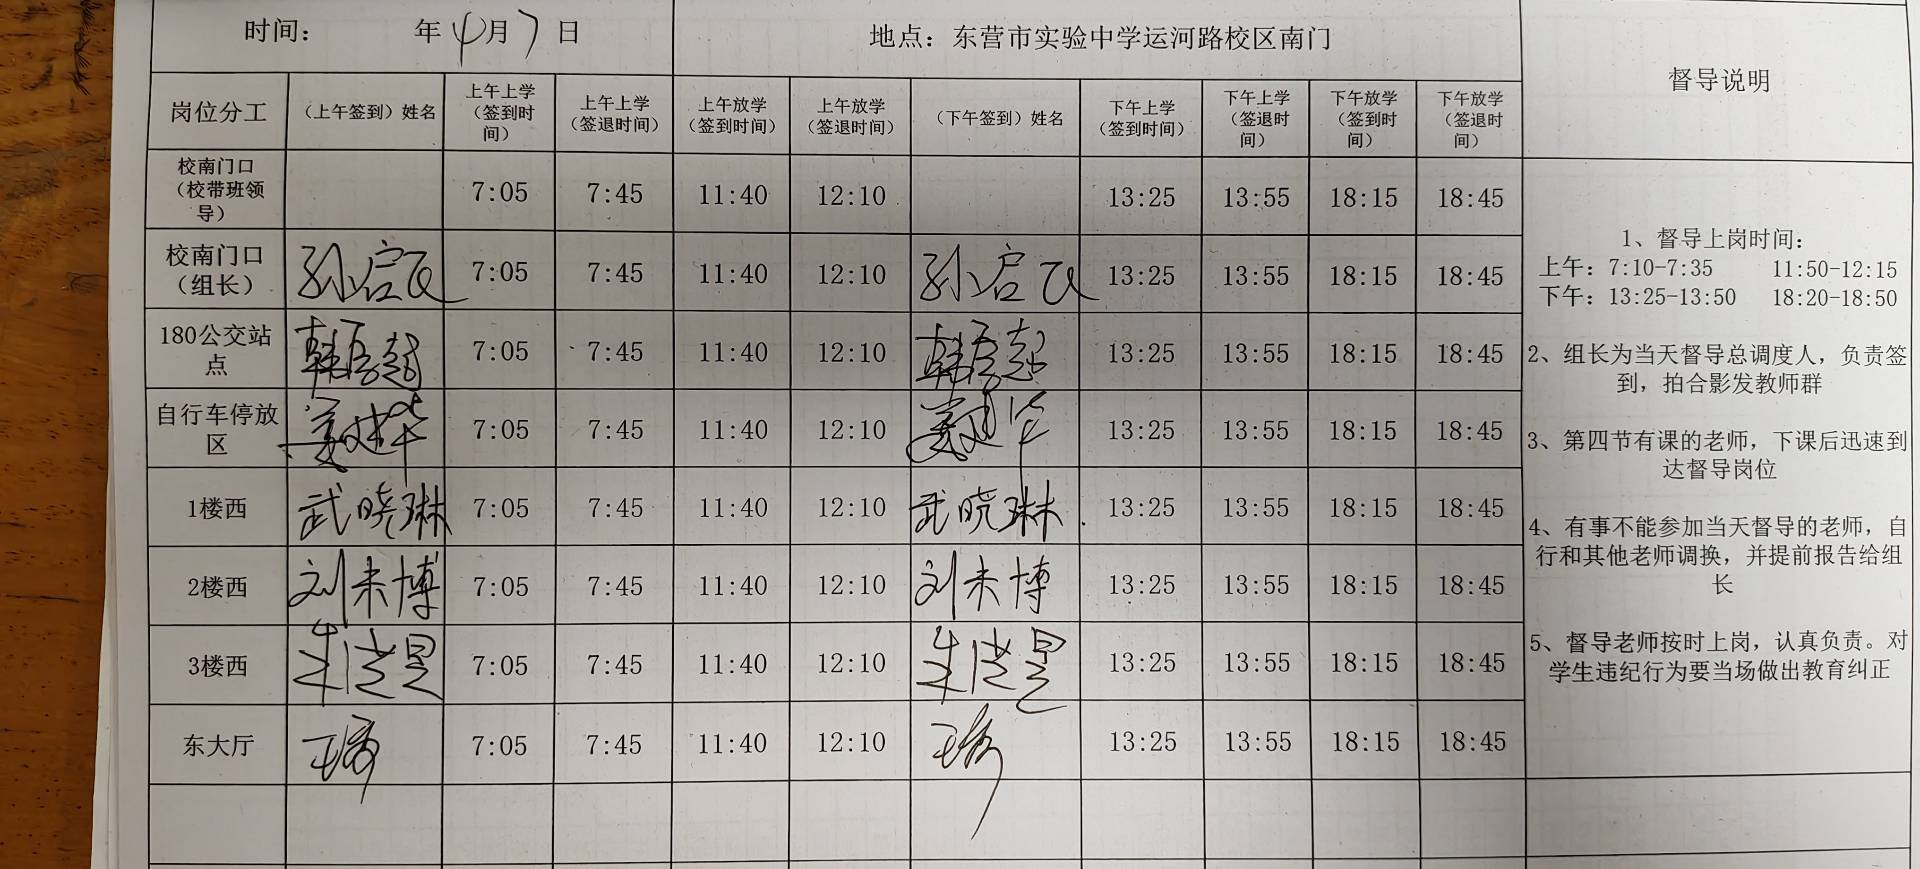 时间： 年 4月 7 日 地点：东营市实验中学运河路校区南门 督导说明
岗位分工 （上午签到）姓名 上午上学（签到时间） 上午上学（签退时间） 上午放学（签到时间） 上午放学（签退时间） （下午签到）姓名 下午上学（签到时间） 下午上学（签退时间） 下午放学（签到时间） 下午放学（签退时间）
校南门口（校带班领导） 7:05 7:45 11:40 12:10 13:25 13:55 18:15 18:45
校南门口（组长） 孙启民 7:05 7:45 11:40 12:10 孙启民 13:25 13:55 18:15 18:45
180公交站点 7:05 7:45 11:40 12:10 13:25 13:55 18:15 18:45
自行车停放区 姜建华 7:05 7:45 11:40 12:10 姜建华 13:25 13:55 18:15 18:45
1楼西 武晓琳 7:05 7:45 11:40 12:10 武晓琳 13:25 13:55 18:15 18:45
2楼西 刘未博 7:05 7:45 11:40 12:10 刘未博 13:25 13:55 18:15 18:45
3楼西 7:05 7:45 11:40 12:10 13:25 13:55 18:15 18:45
东大厅 7:05 7:45 11:40 12:10 13:25 13:55 18:15 18:45
1、督导上岗时间：
上午：7:10-7:35 11:50-12:15
下午：13:25-13:50 18:20-18:50
2、组长为当天督导总调度人，负责签
到，拍合影发教师群
3、第四节有课的老师，下课后迅速到
达督导岗位
4、有事不能参加当天督导的老师，自
行和其他老师调换，并提前报告给组
长
5、督导老师按时上岗，认真负责。对
学生违纪行为要当场做出教育纠正